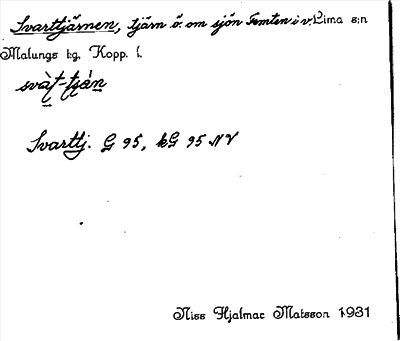 Svarttjärnen, tjärn ö. om sjön Femten i v. Lima s:n
Malungs t:g, Kopp. l.
svàt-tjạ̀n
Svarttj. G 95, kG 95 NV
Niss Hjalmar Matsson 1931